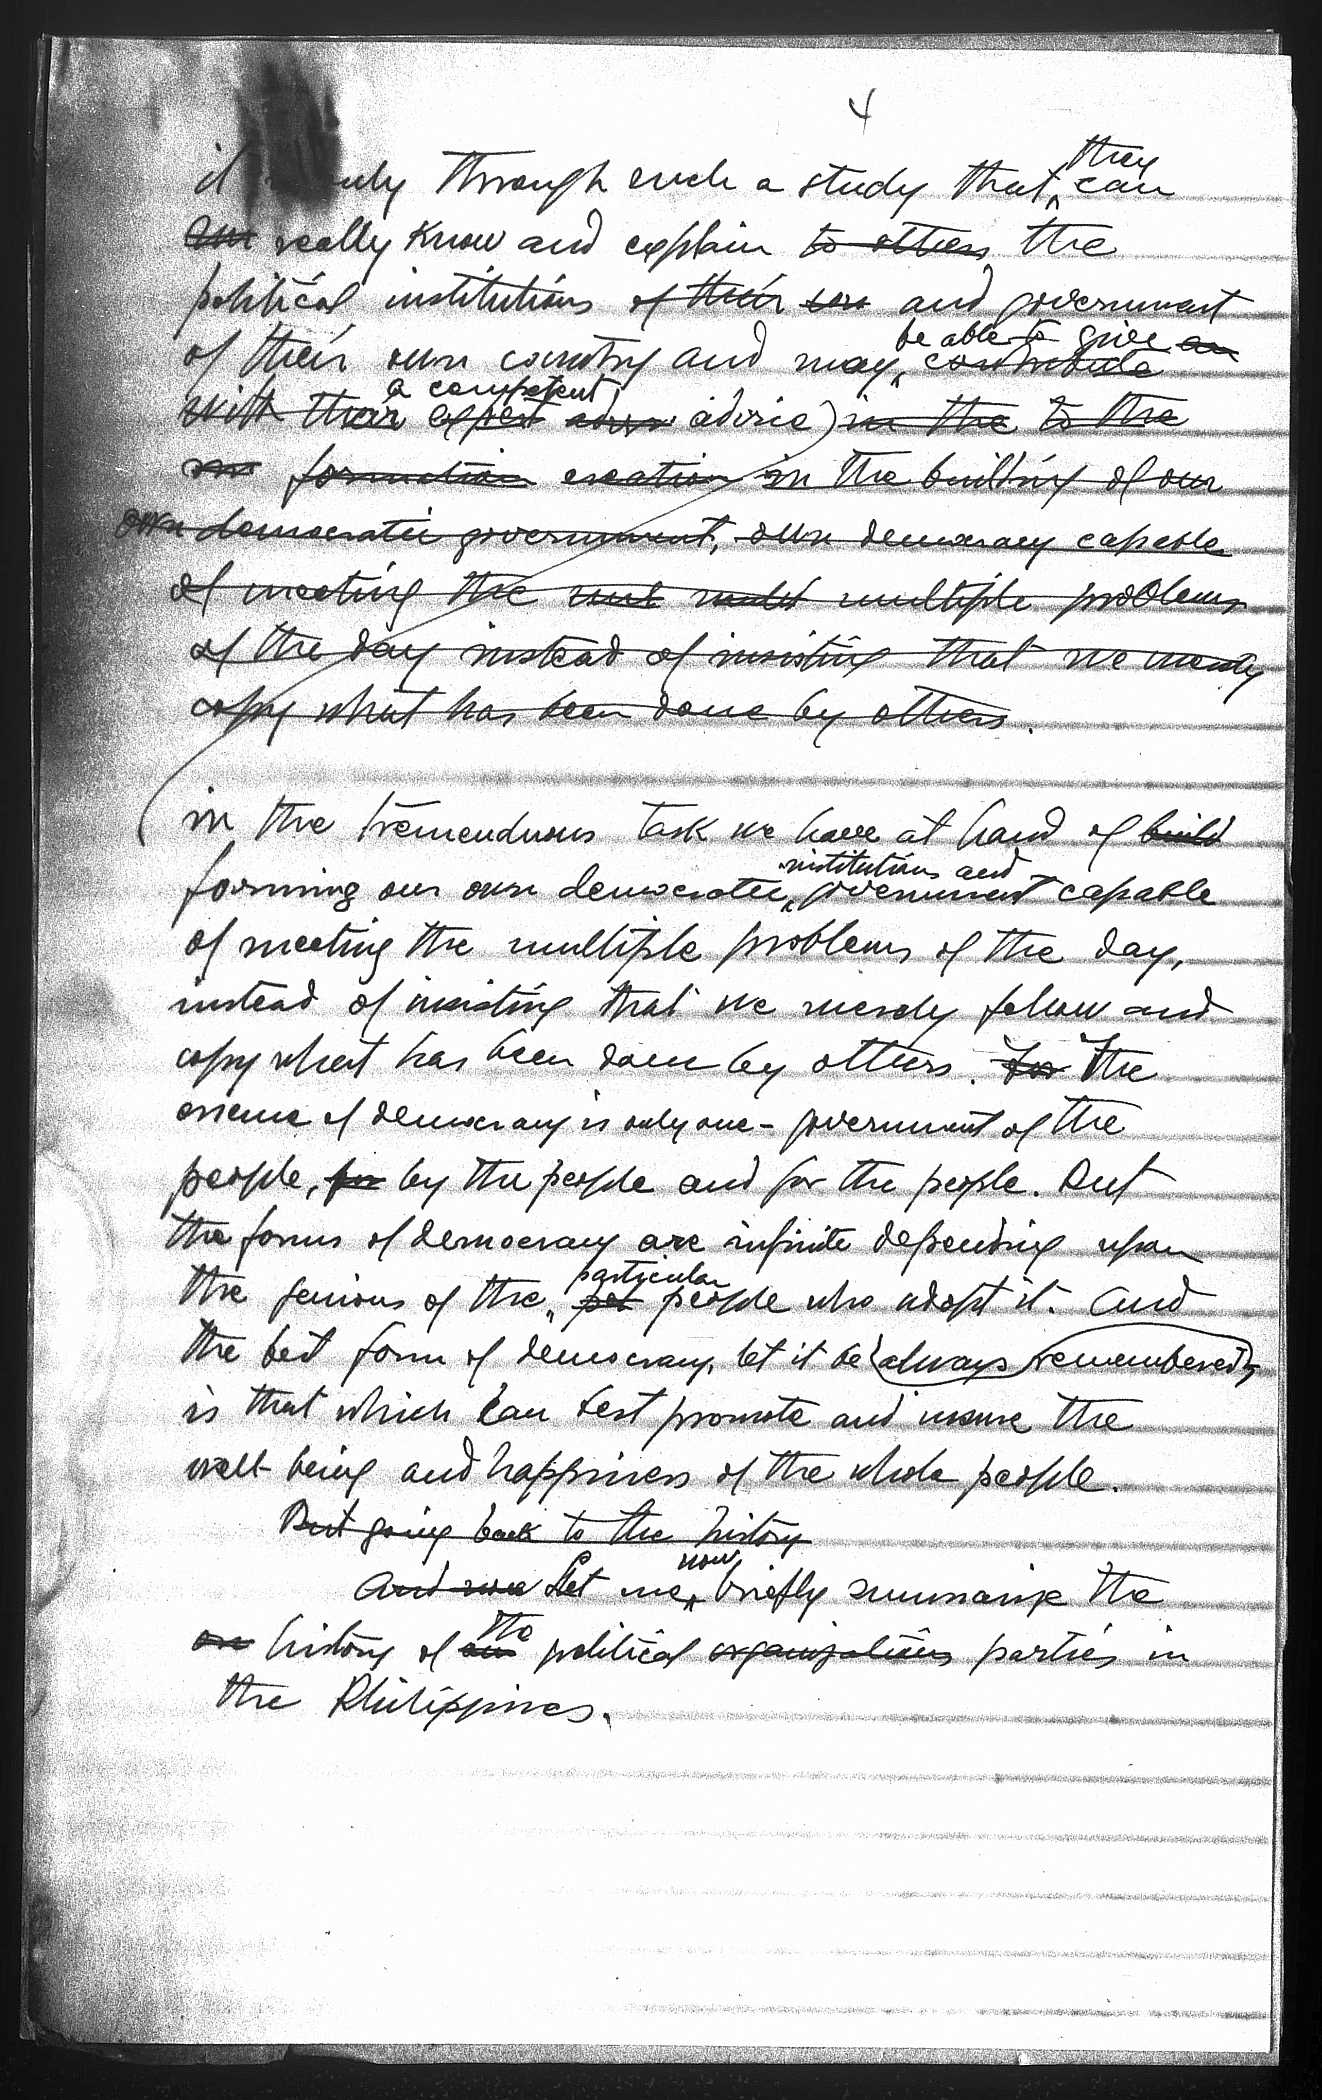 4
it only through such a study that they can
really know and explain to others the
political institutions of their own and government
of their own country and may be able to give an contribute
with their a competent expert advice) in the to the
formation creation in the building of our
own democratic government, own democracy capable
of meeting the multiple problems
of the day instead of insisting that we merely
copy what has been done by others.
(in the tremenduous task we have at hand of build
forming our own democratic institutions and government capable
of meeting the multiple problems of the day,
instead of insisting that we merely follow and
copy what has been done by others. For The
essence of democracy is only one - government of the
people, for by the people and for the people. But
the forms of democracy are infinite depending upon
the genious of the particular people who adopt it. And
the best form of democracy, let it be always remembered,
is that which can best promote and insure the
well-being and happiness of the whole people.
But going back to the history
And now Let me now briefly summarize the
history of the political organizations parties in
the Philippines.